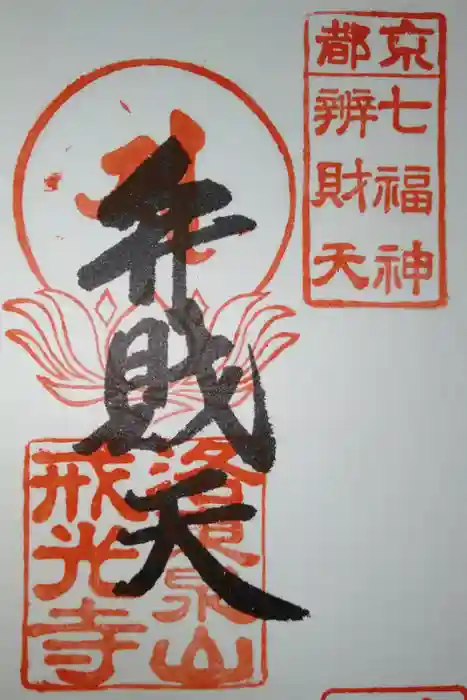 京都
七福神
辨財天
弁財天
洛東泉山
戒光寺